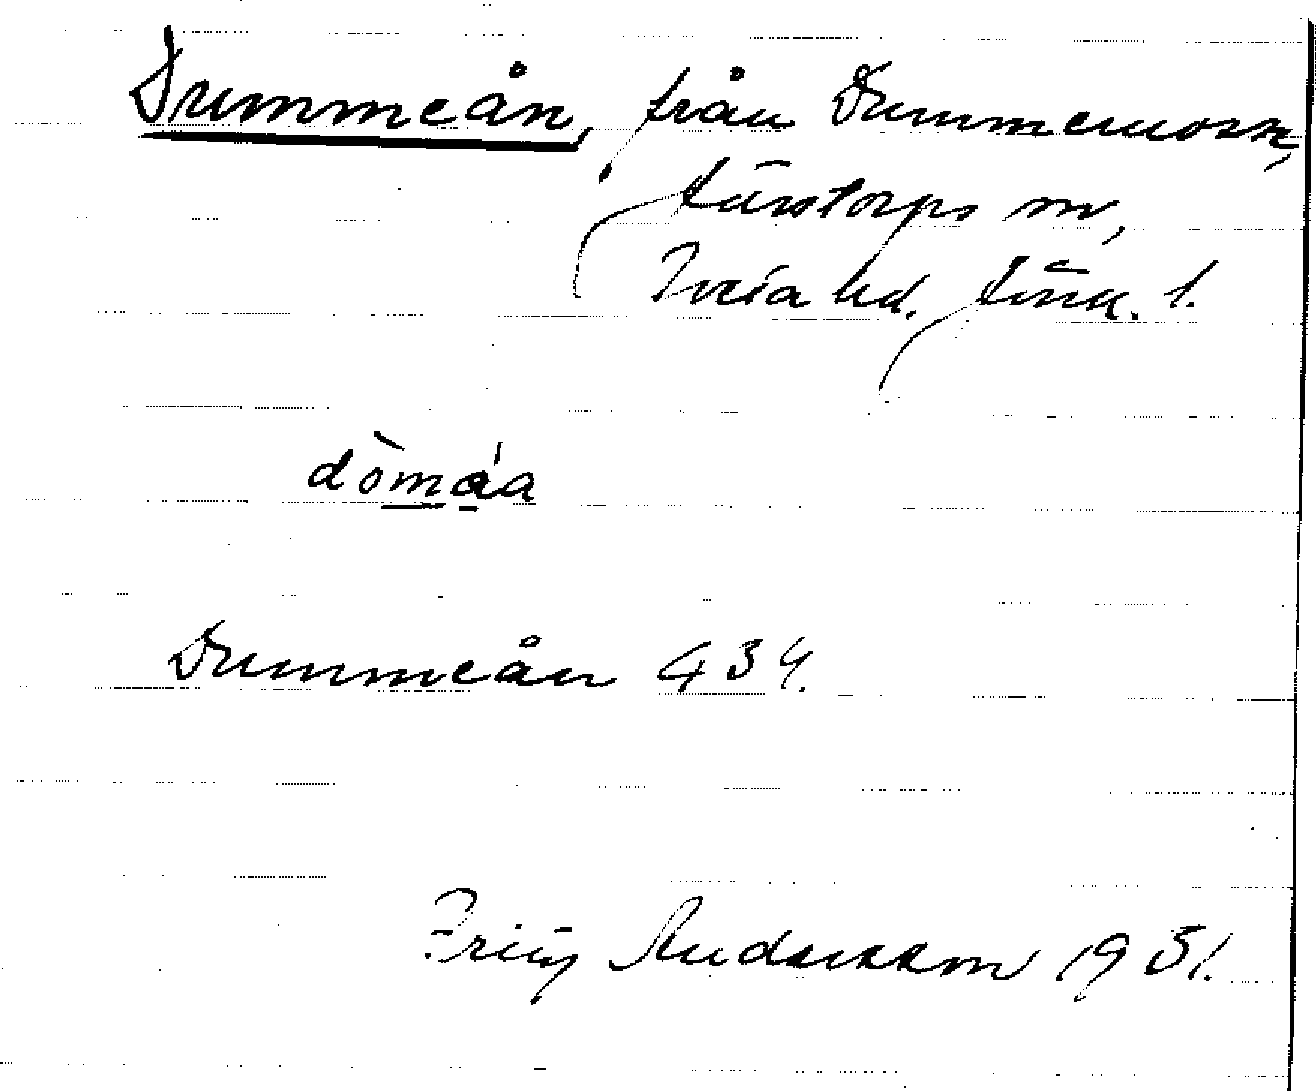 Dummeån, från Dummemosse,
Järstorps sn,
Tveta hd. Jönk. l.
dòmáa
Dummeån 434.
Andersson 1931.